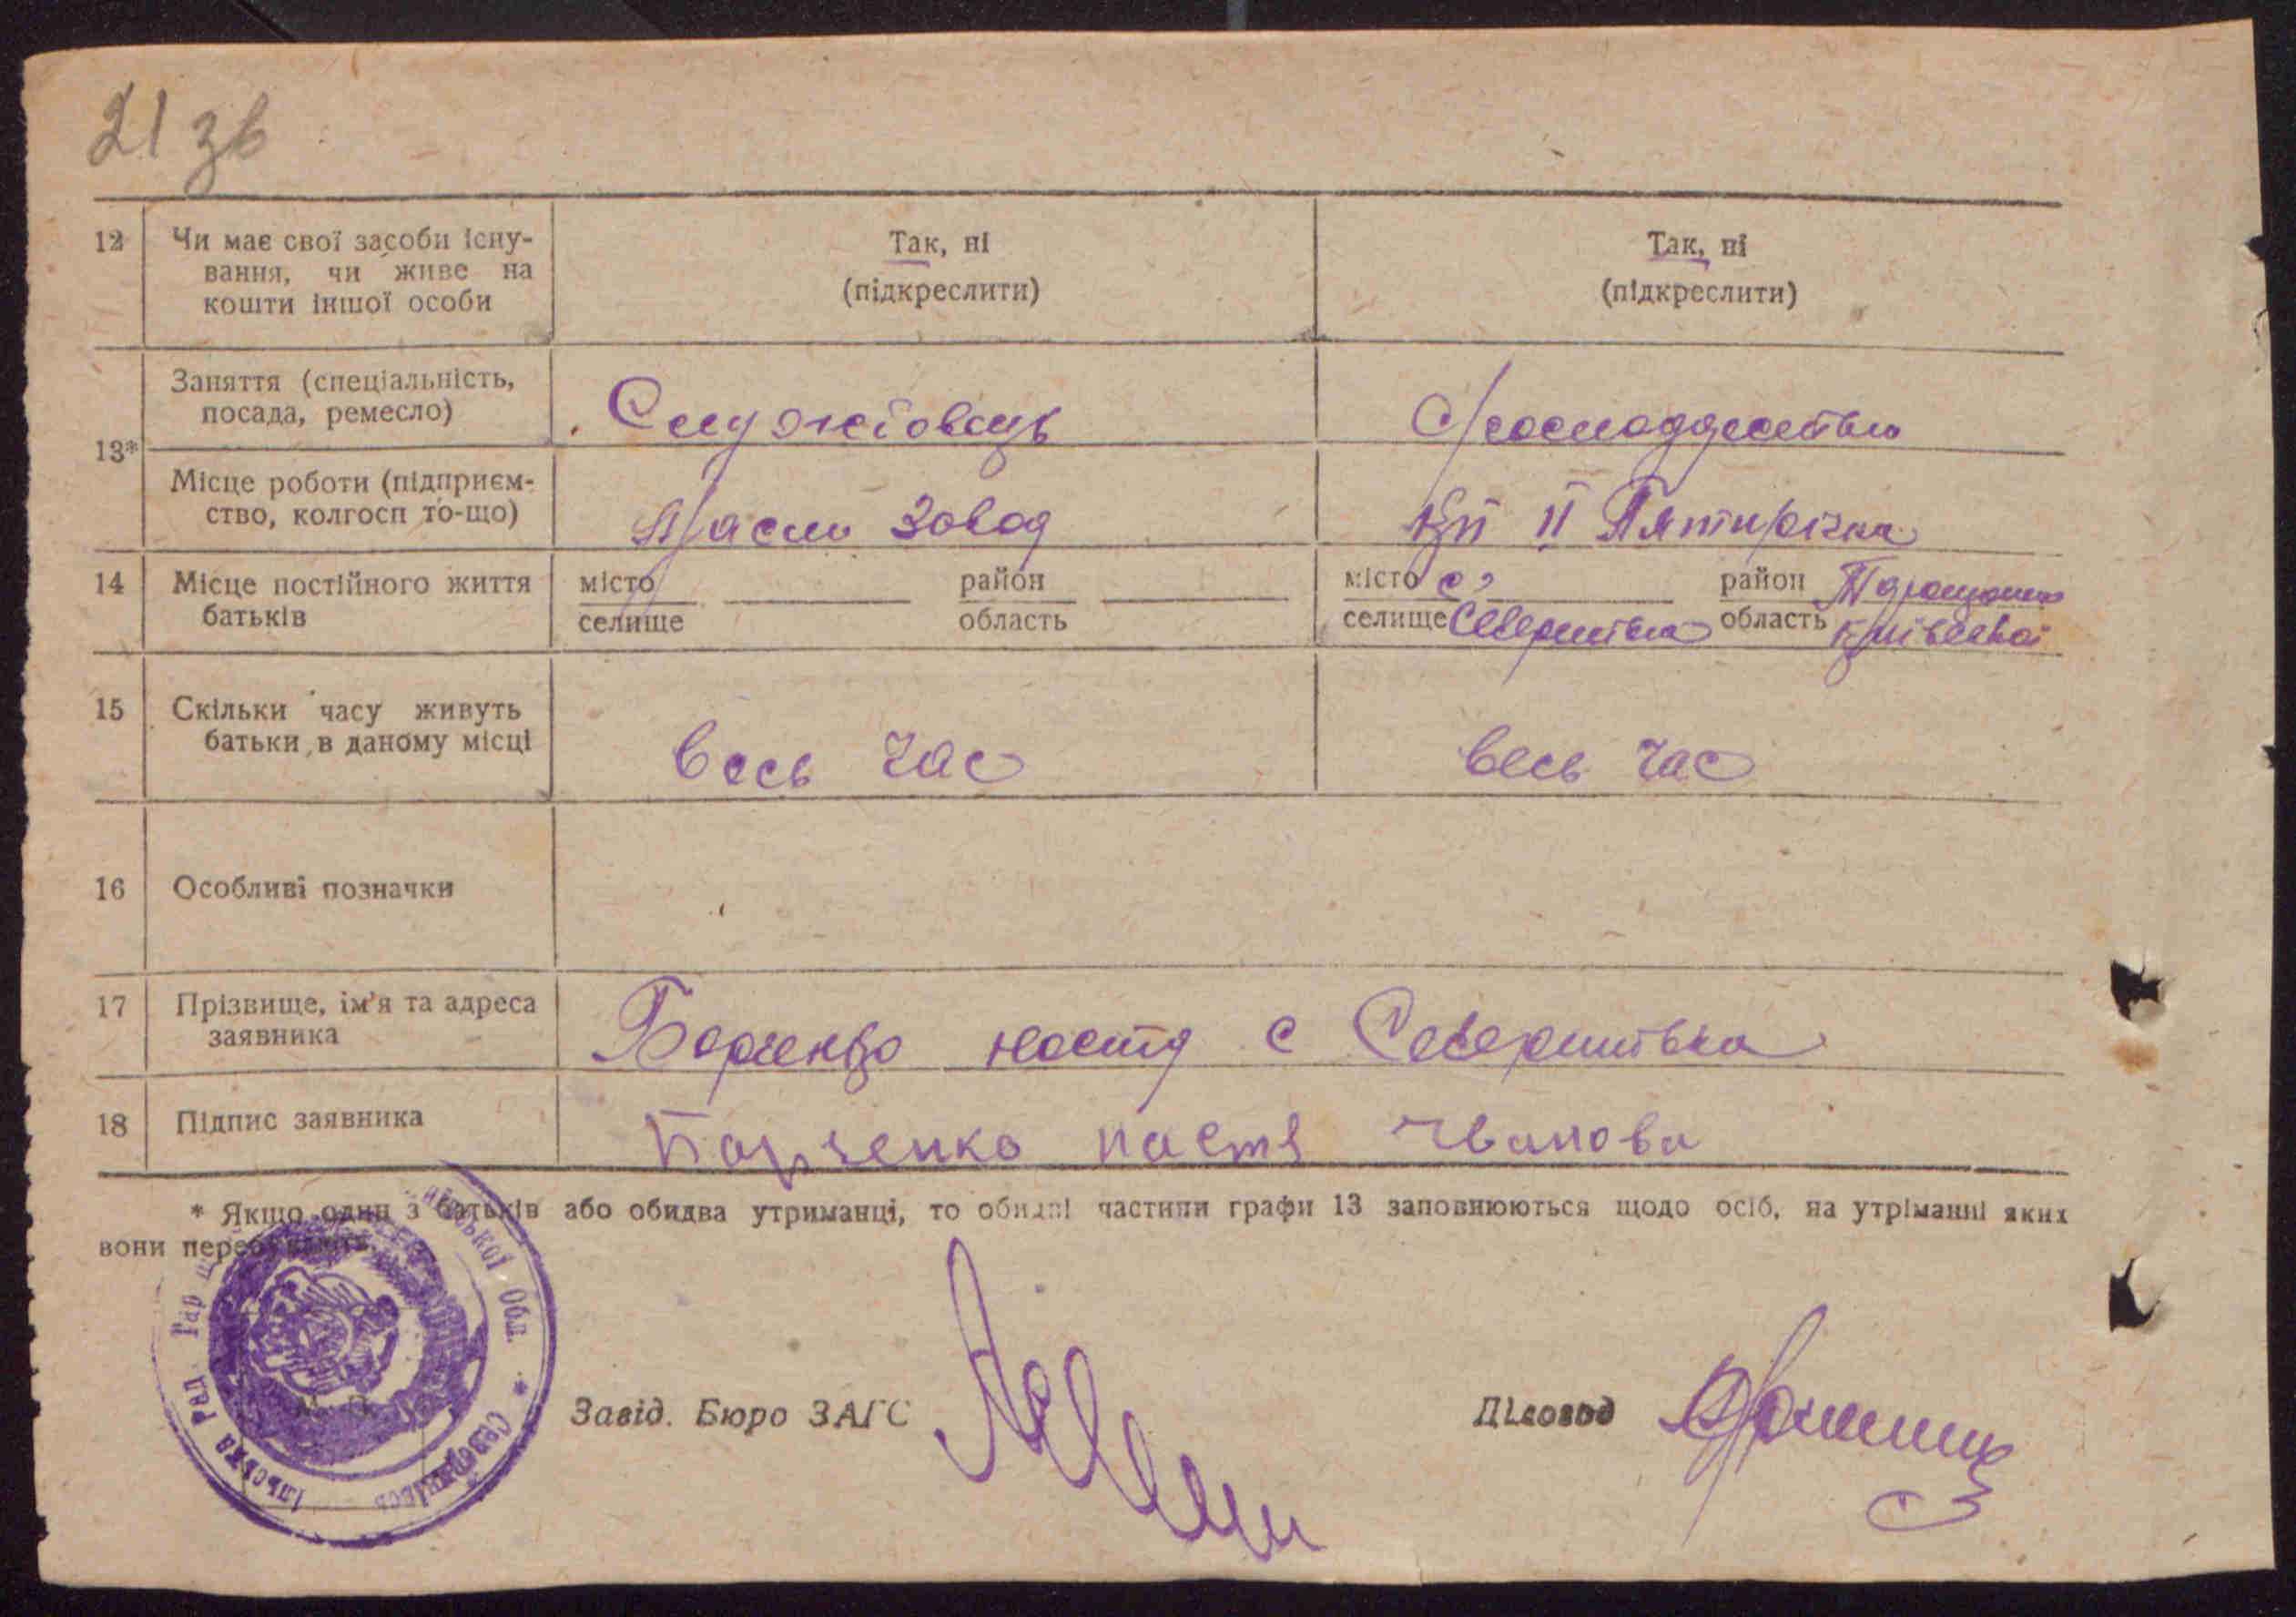 21 зв
12 Чи має свої засоби існу- Так, ні Так, ні
вання, чи живе на (підкреслити) (підкреслити)
кошти іншої особи
13* Заняття (спеціальність, Службовець
посада, ремесло)
Місце роботи (підприєм- Масло Завод ІІ Пятирічка
ство, колгосп то-що)
14 Місце постійного життя місто район місто с. район
батьків селище область селище Северинівка область Київської
15 Скільки часу живуть весь час весь час
батьки в даному місці
16 Особливі позначки
17 Прізвище, ім'я та адреса Барченко Настя с Северинівка
заявника
18 Підпис заявника Барченко настя
* Якщо один з батьків або обидва утриманці, то обидві частини графи 13 заповнюються щодо осіб, на утріманні яких
вони перебувають.
Завід. Бюро ЗАГС Діловод
Обл.